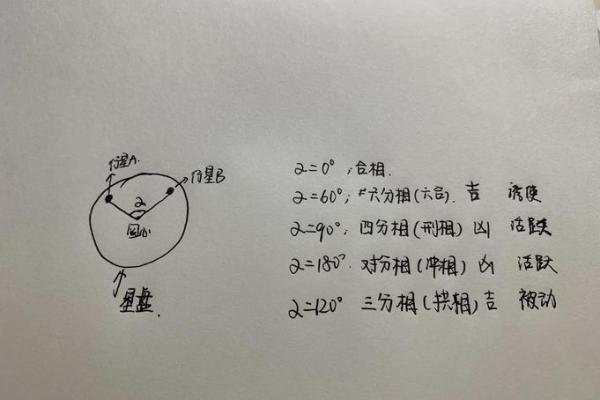 行星A.
行星B
α
圆心
星盘.
α=0°;合相.
α=60°;六分相(六合).吉 诱使
α=90°;四分相(刑相)凶 活跃
α=180°.对分相(冲相)凶 活跃
α=120° 三分相(拱相)吉 被动